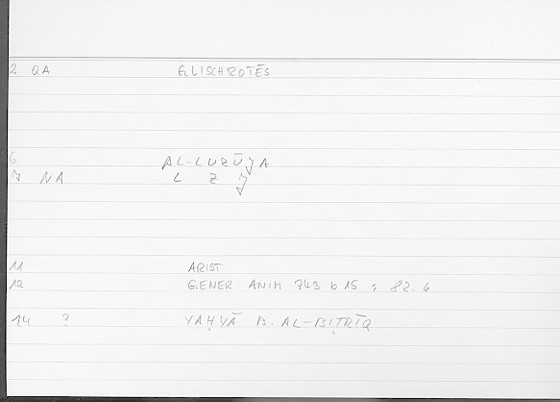 2 QA GLISCHROTĒS
6 AL-LUZŪǦA
7 NA L Z Ǧ
11 ARIST
12 GENER ANIM 743 b 15 ; 82.6
14 ? YAḤYĀ B. AL-BIṬRĪQ